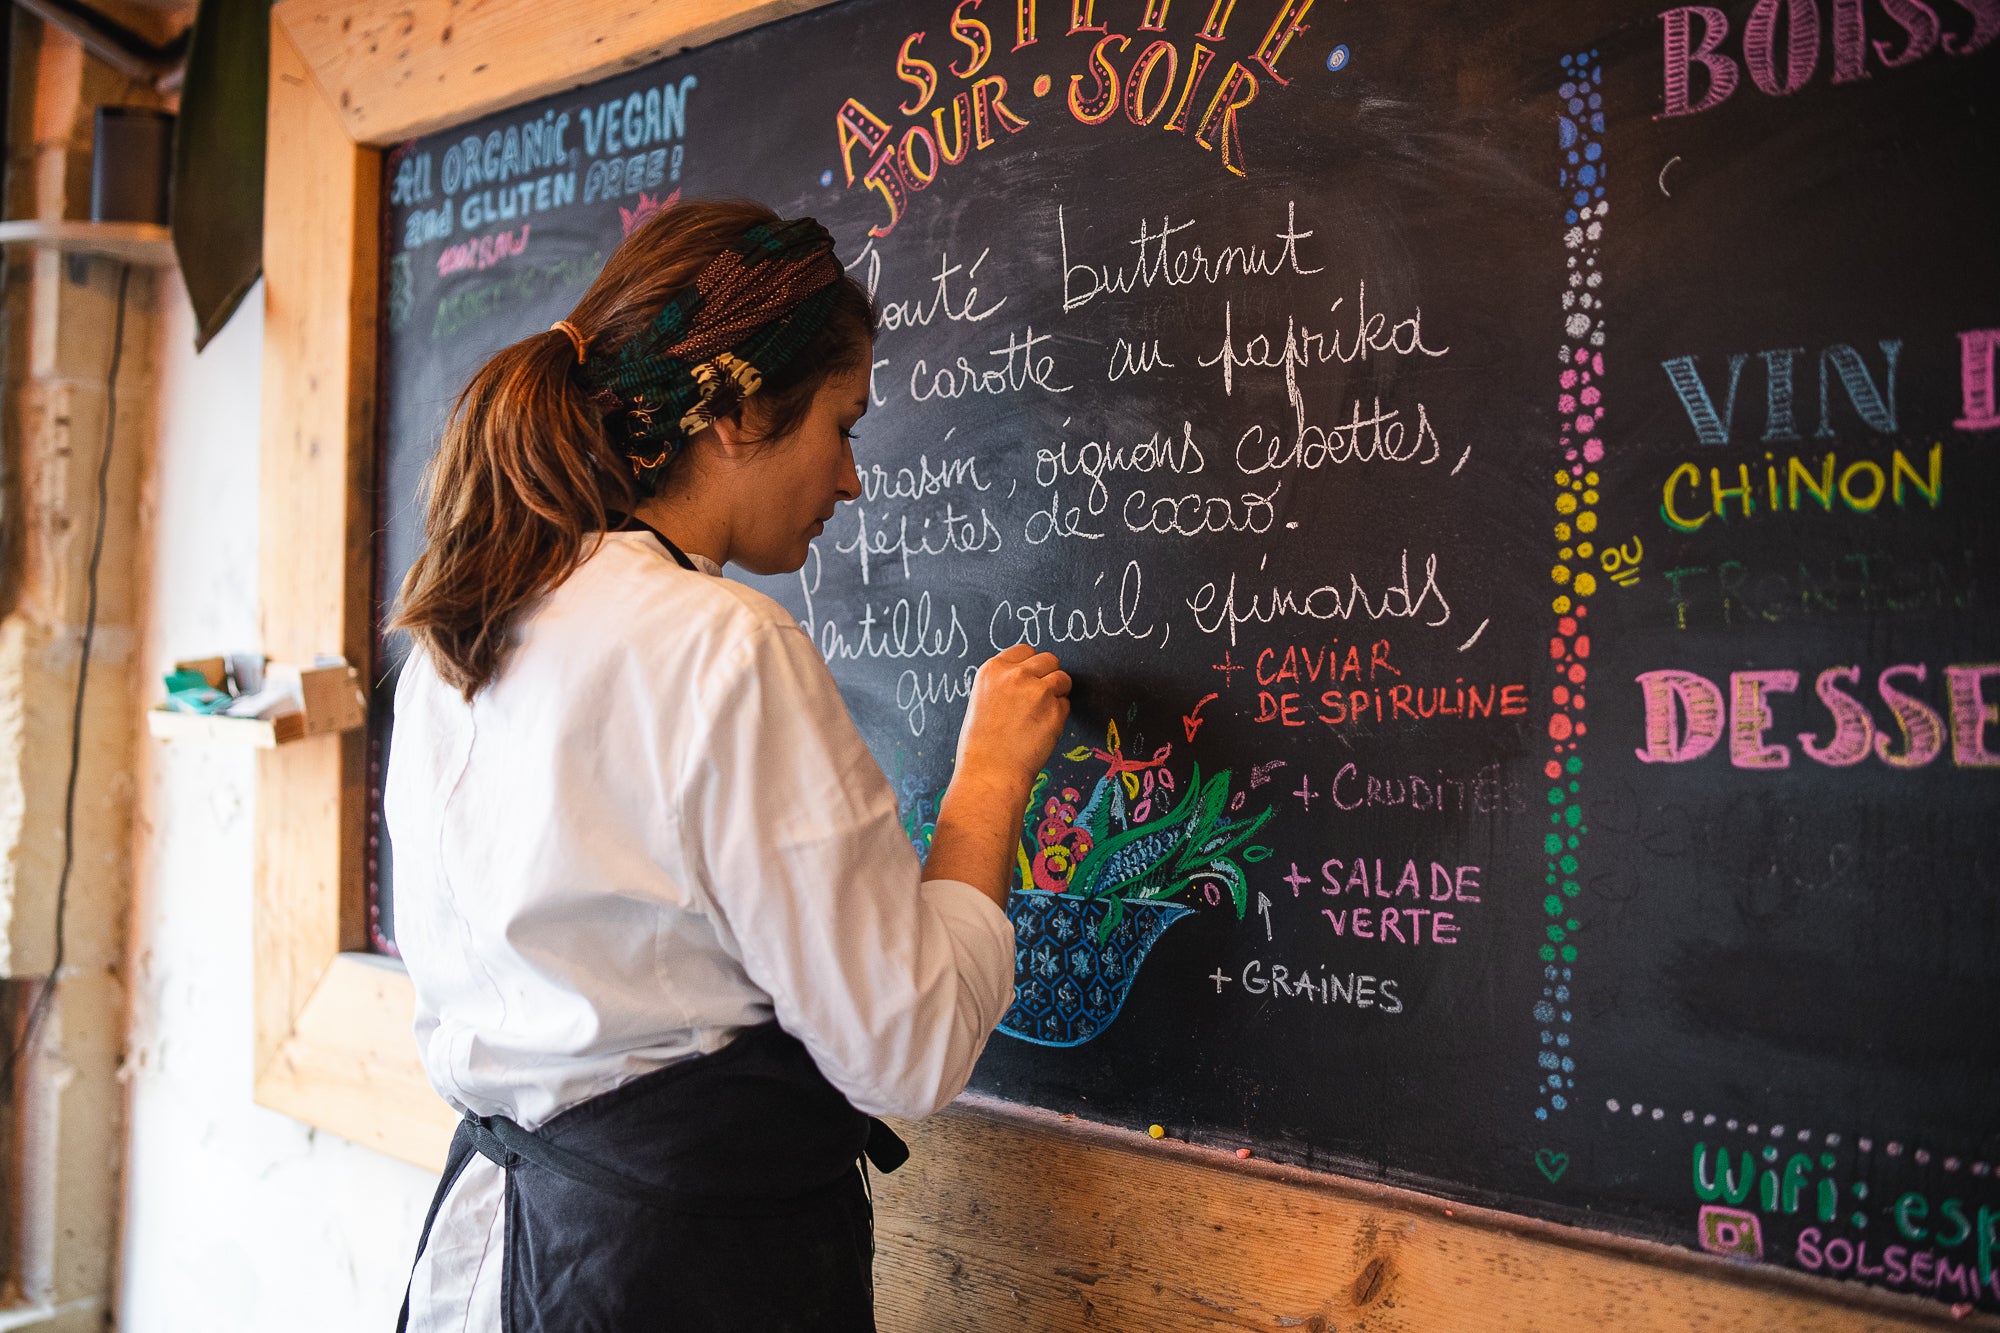 All ORGANIC, VEGAN
and GLUTEN FREE!
100% RAW
ASSIETTE
JOUR • SOIR
louté butternut
t carotte au paprika
rrasin, oignons cebettes,
pépites de cacao.
lentilles corail, épinards,
+ CAVIAR
DE SPiRULINE
+ CRUDITÉS
+ SALADE
VERTE
+ GRAiNES
BOISS
VIN D
CHiNON
OU
FRONTON
DESSE
Wifi: esp
SOLSEMI